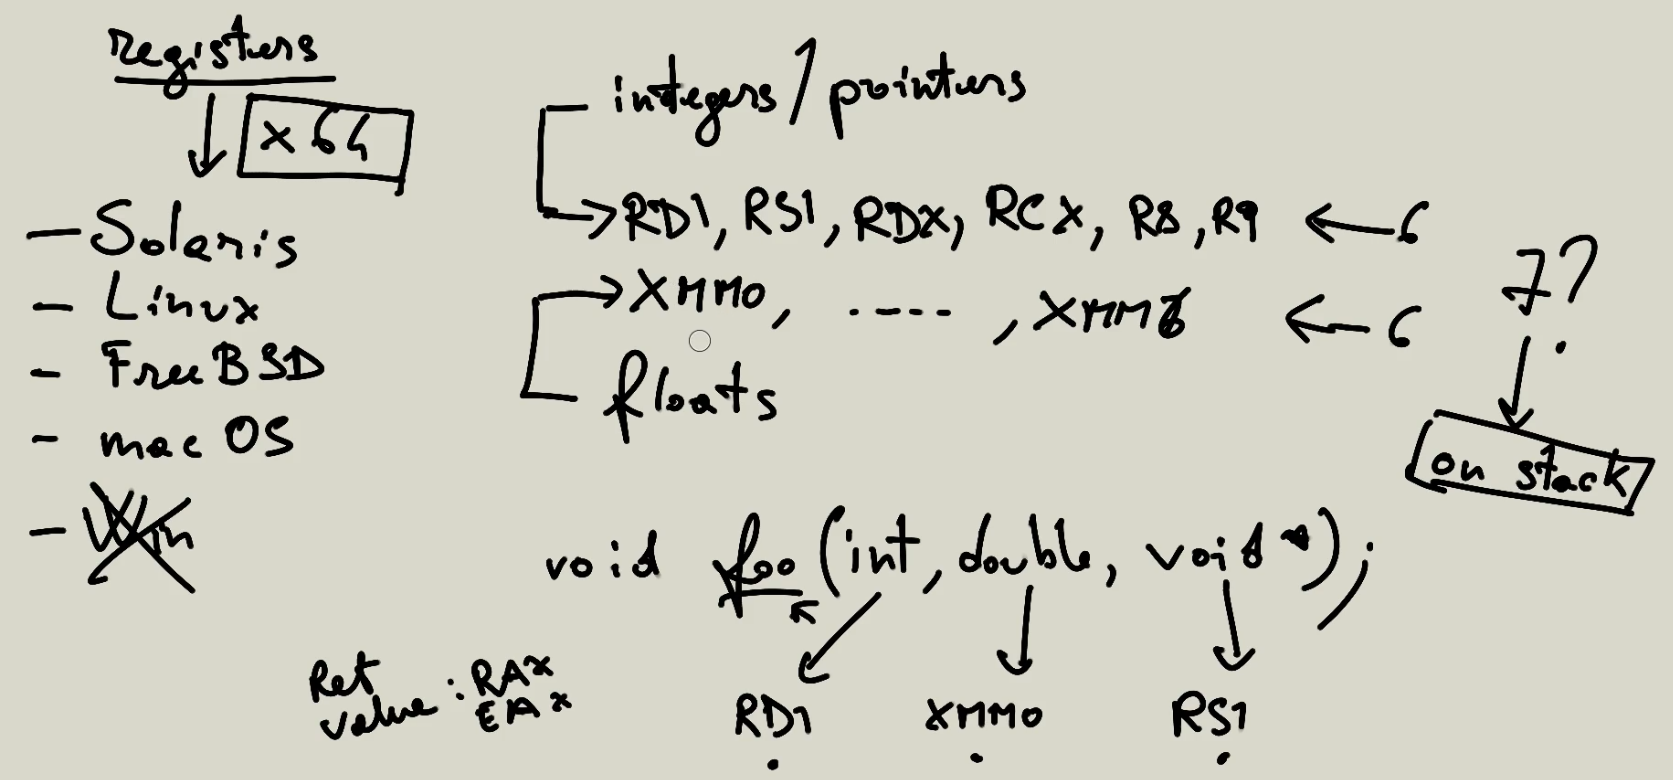 registers
x64
- Solaris
- Linux
- FreeBSD
- mac OS
- Win
integers / pointers
RDI, RSI, RDX, RCX, R8, R9 ← 6
XMM0, ----- , XMM ← 6
floats
7?
on stack
void foo (int, double, void *);
RDI XMM0 RSI
Ret value : RAX
EAX